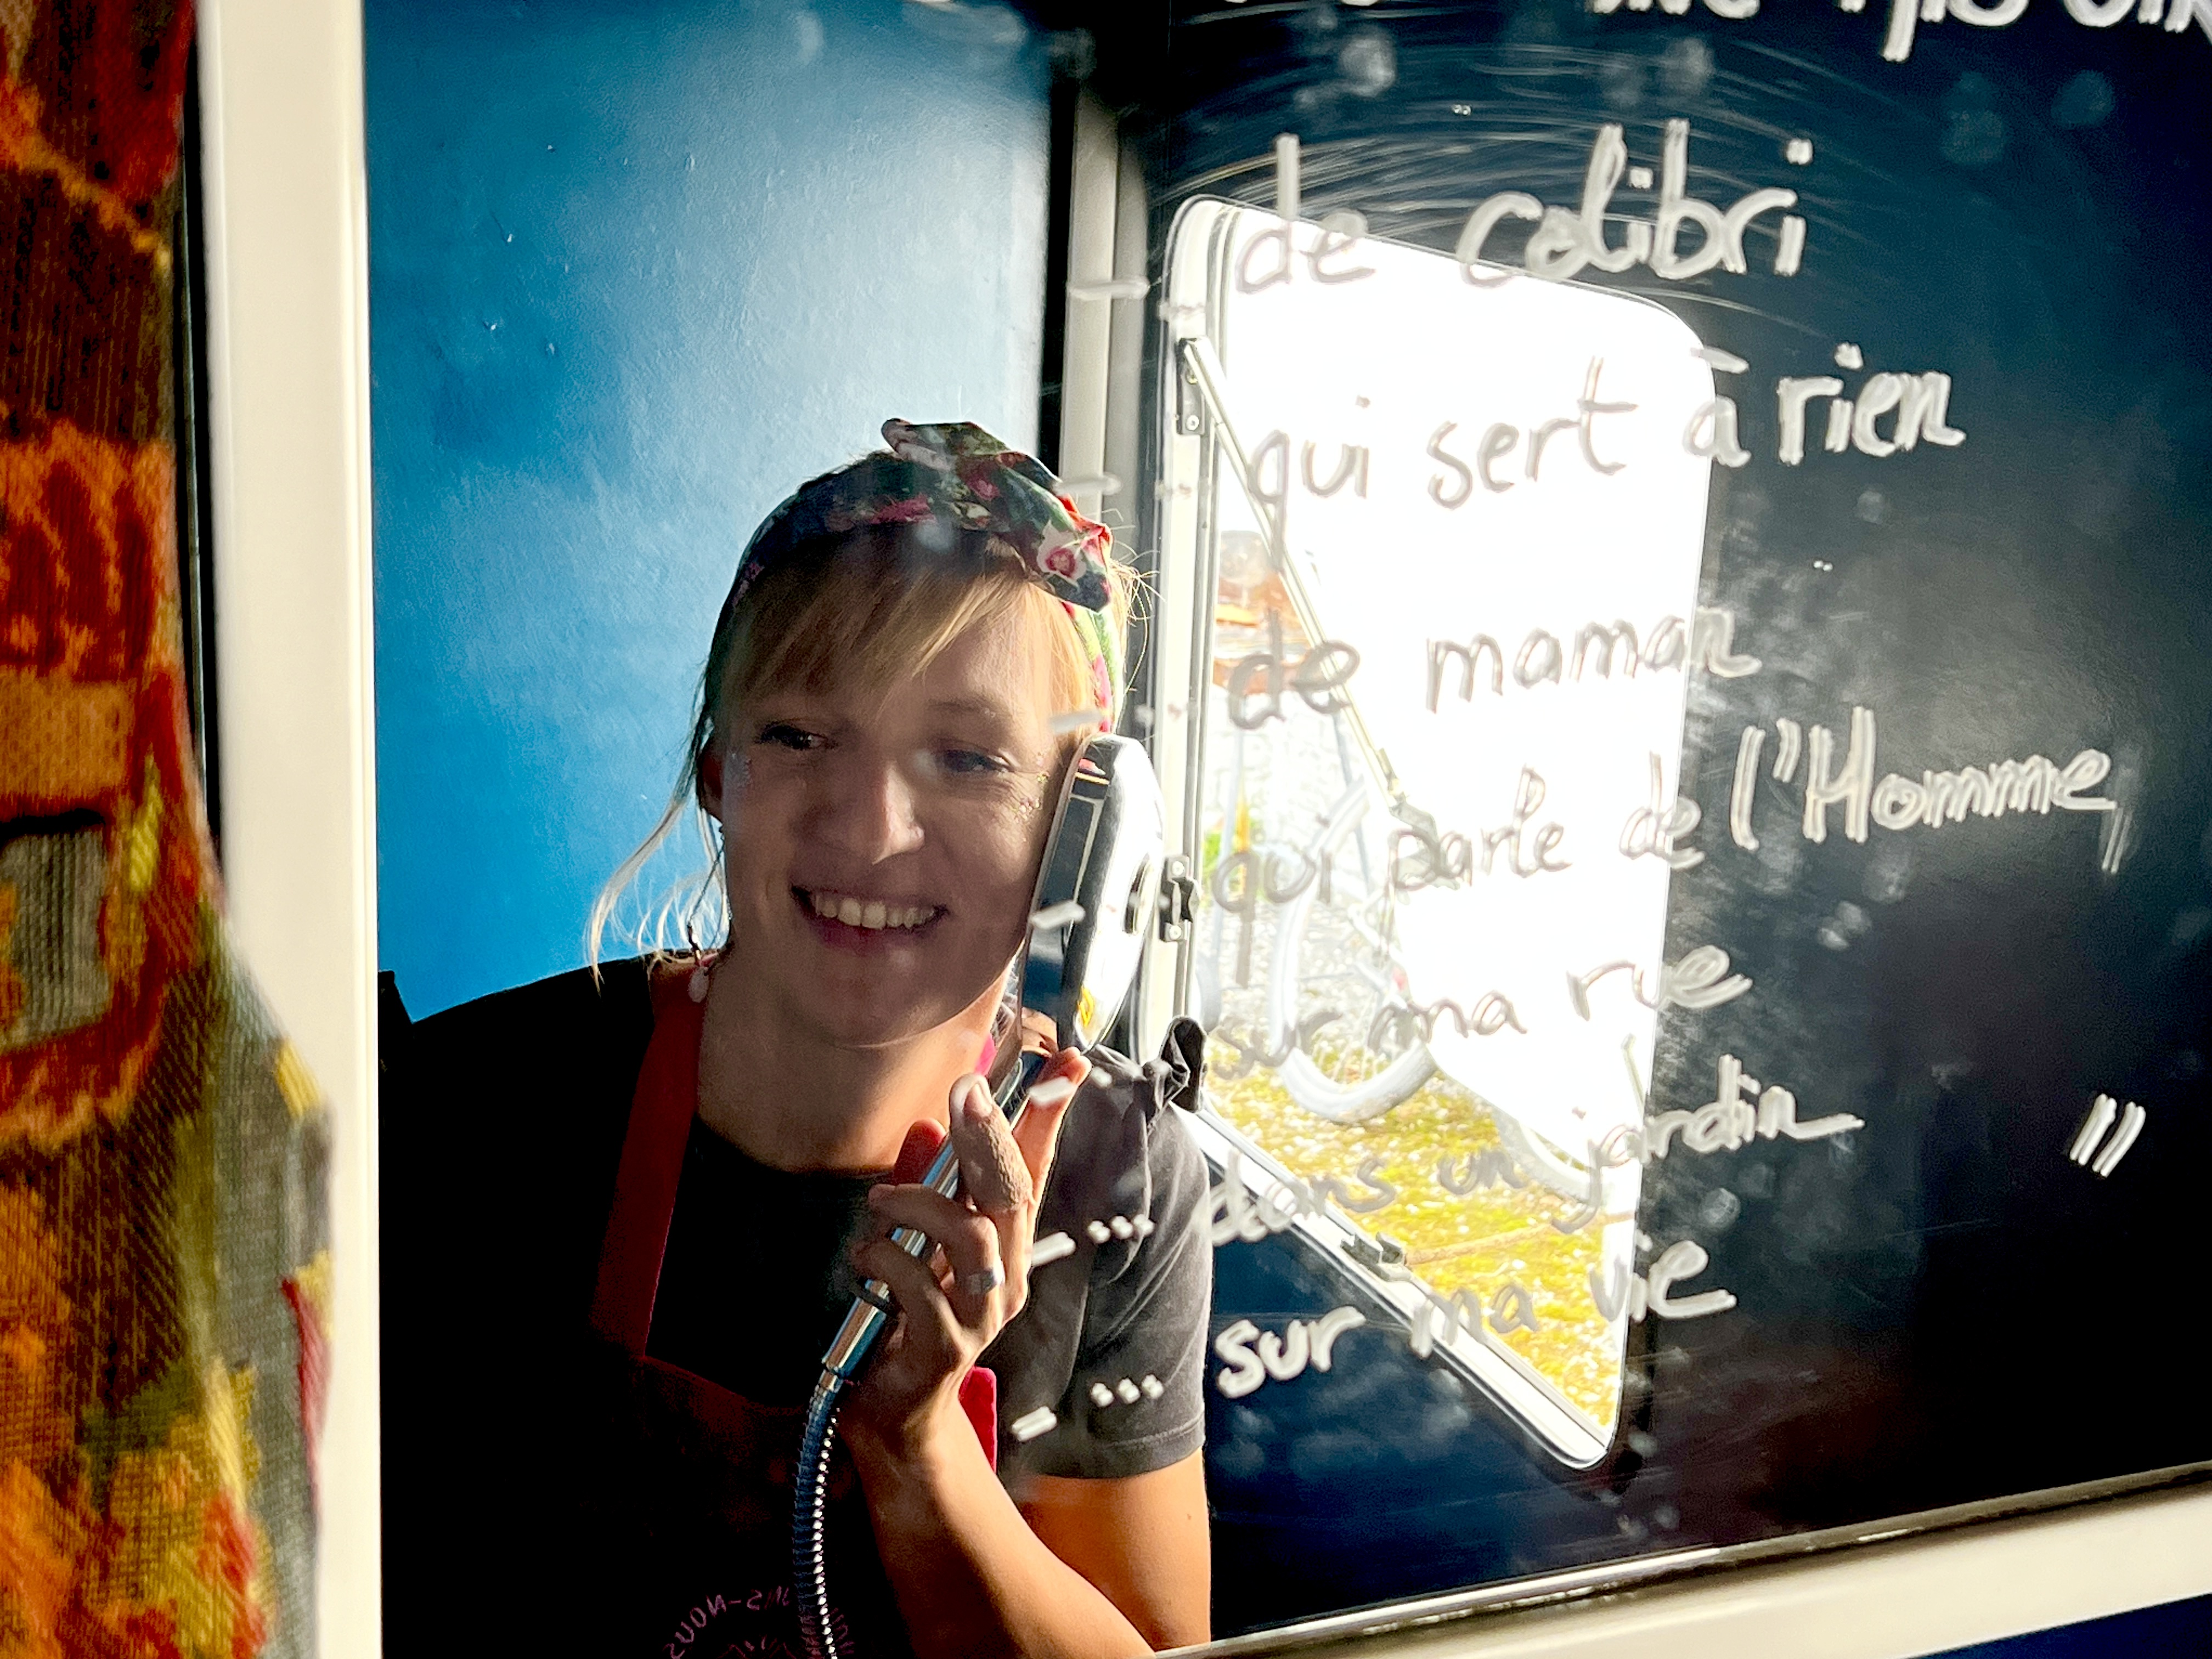 une histoir
- de colibri
- qui sert à rien
- de maman
- qui parle de l'Homme,
- sur ma rue
- ... dans un jardin "
- ... sur ma vie
NS-NOUS